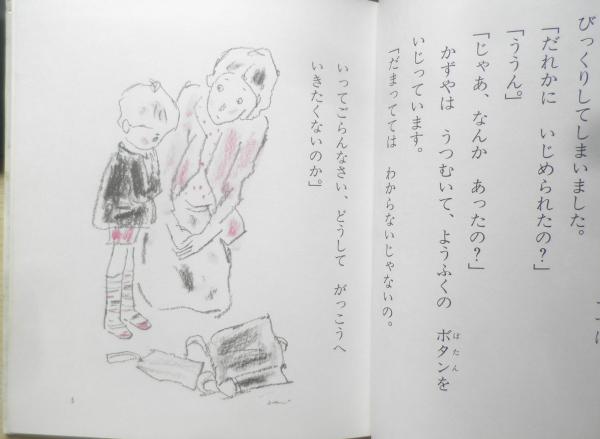 びっくりしてしまいました。
「だれかに いじめられたの？」
「ううん。」
「じゃあ、なんか あったの？」
かずやは うつむいて、ようふくの ボタンを
ばたん
いじっています。
「だまってては わからないじゃないの。
いってごらんなさい、どうして がっこうへ
いきたくないのか。」